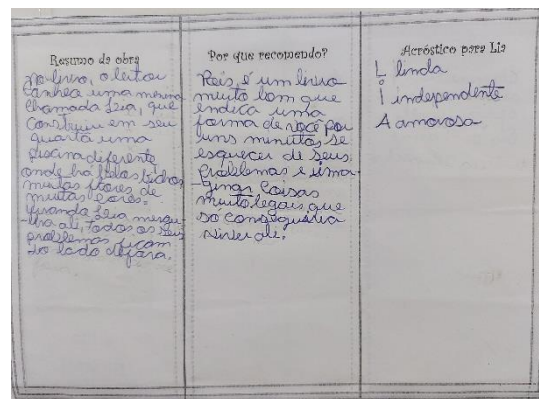 Resumo da obra
No livro, o leitor
conhece uma menina
chamada Leia, que
construiu em seu
quarto uma
piscina diferente
onde há
muitas flores de
muitas cores.
Quando Leia mergu-
lha ali, todos os seus
problemas ficam
do lado de fora.
Por que recomendo?
Pois, é um livro
muito bom que
endica uma
forma de você por
uns minutos se
esquecer de seus
problemas e ima-
ginar coisas
muito legais que
so conseguiria
ali.
Acróstico para Lia
L linda
i independente
A amorosa